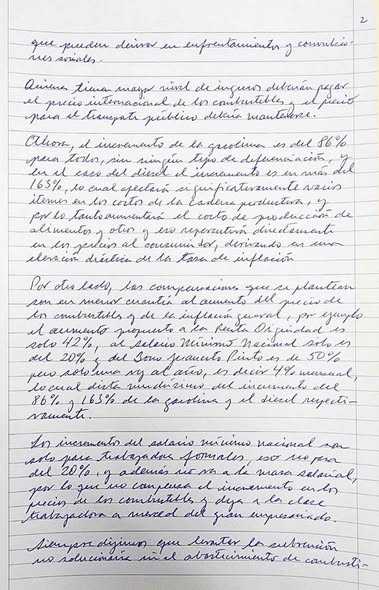 2
que pueden derivar en enfrentamientos y convulsio-
nes sociales.
Quienes tienen mayor nivel de ingresos deberán pagar
el precio internacional de los combustibles y el precio
para el transporte público debería mantenerse.
Ahora, el incremento de la gasolina es del 86%
para todos, sin ningún tipo de diferenciación, y
en el caso del diesel el incremento es en más del
163%, lo cual afectará significativamente varios
items en los costos de la cadena productiva, y
por lo tanto aumentará el costo de producción de
alimentos y otros y eso repercutirá directamente
en los precios al consumidor, derivando en una
elevación drástica de la tasa de inflación
Por otro lado, las compensaciones que se plantean
son en menor cuantía al aumento del precio de
los combustibles y de la inflación general, por ejemplo
el aumento propuesto a la Renta Dignidad es
solo 42%, al Salario Mínimo Nacional solo es
del 20% y del Bono Juancito Pinto es de 50%
pero solo una vez al año, es decir 4% mensual,
lo cual dista muchísimo del incremento del
86% y 163% de la gasolina y el diesel respecti-
vamente.
Los incrementos del salario mínimo nacional son
solo para trabajadores formales, eso no pasa
del 20%, y además no va a la masa salarial,
por lo que no compensa el incremento en los
precios de los combustibles y deja a la clase
trabajadora a merced del gran empresariado.
Siempre dijimos que levantar la subvención
no solucionaría ni el abastecimiento de combusti-